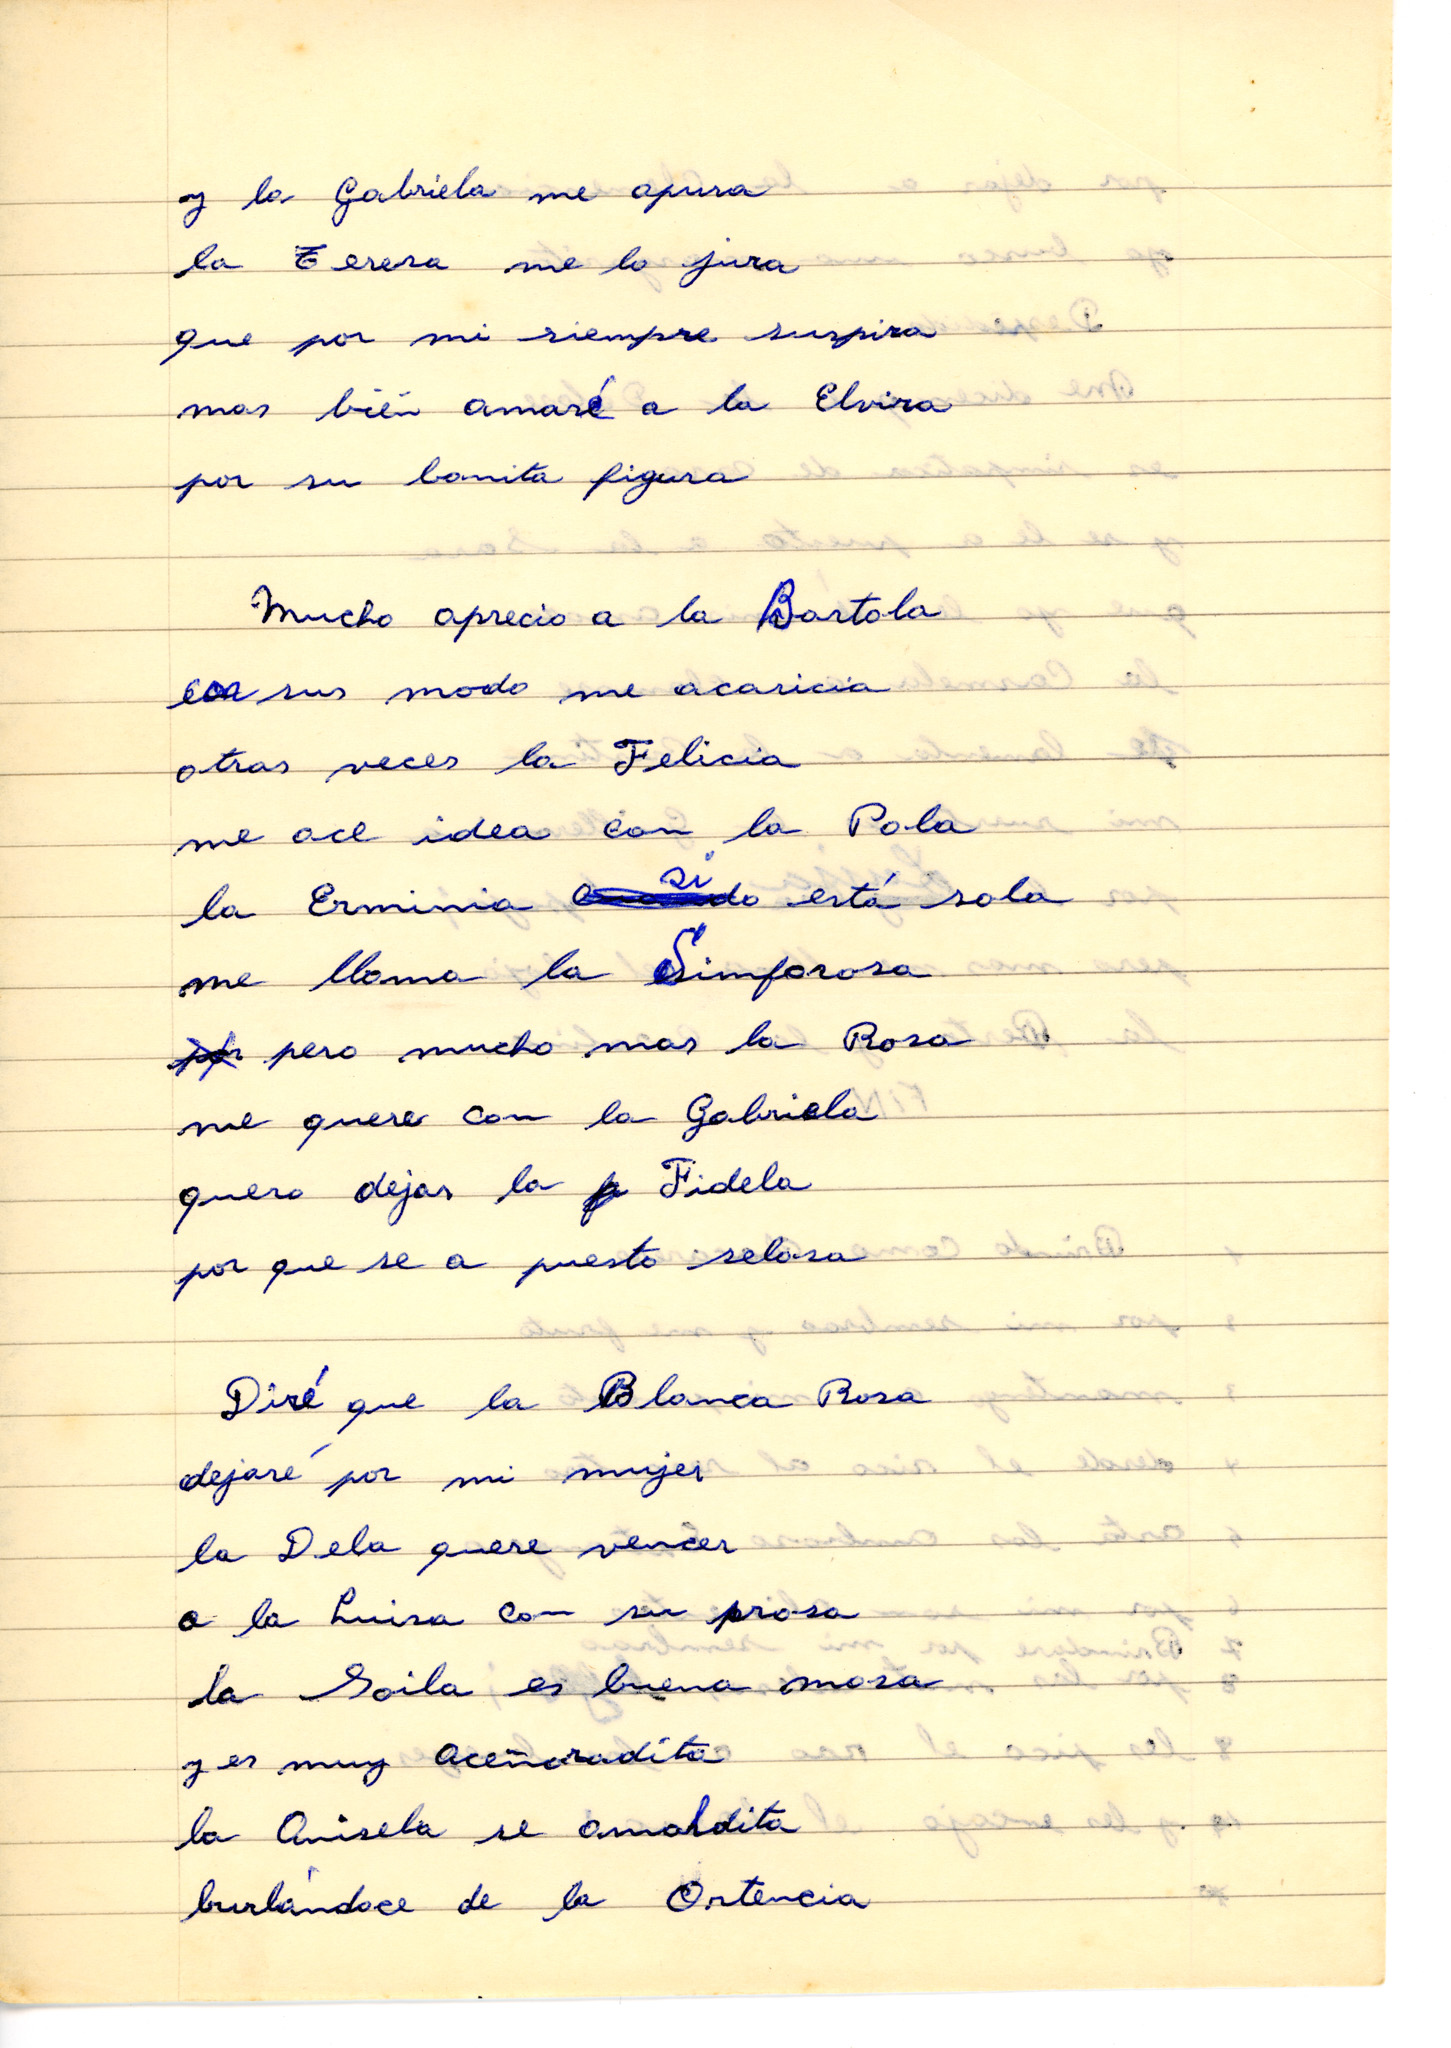 y la Gabriela me apura
la Teresa me lo jura
que por mi siempre suspira
mas bién amaré a la Elvira
por su bonita figura
Mucho aprecio a la Bartola
con sus modo me acaricia
otras veces la Felicia
me ace idea con la Pola
la Erminia si está sola
me llama la Simforosa
pero mucho mas la Rosa
me quere con la Gabriela
quero dejar la Fidela
por que se a puesto selosa
Diré que la Blanca Rosa
dejaré por mi mujer
la Dela quere vencer
a la Luisa con su prosa
la Soila es buena mosa
y es muy aceñoradita
la Anisela se amaldita
burlándoce de la Ortencia